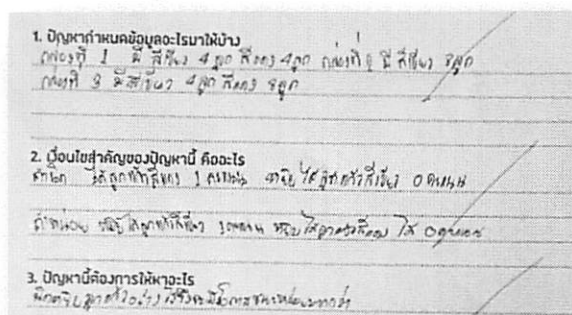 1. ปัญหากำหนดข้อมูลอะไรมาให้บ้าง
กล่องที่ 1 มี สีเขียว 4 ลูก สีแดง 4 ลูก กล่องที่ 2 มี สีเขียว ลูก
กล่องที่ 3 มีสีเขียว 4 ลูก สีแดง ลูก
2. เงื่อนไขสำคัญของปัญหานี้ คืออะไร
ได้ลูกแก้วสีแดง 1 คะแนน ได้ลูกแก้วสีเขียว 0 คะแนน
หยิบได้ลูกแก้วสีเขียว 1 คะแนน หยิบได้ลูกแก้วสีแดง ได้ 0 คะแนน
3. ปัญหานี้ต้องการให้หาอะไร
ลูกแก้วอย่างไรจึงจะมีโอกาสชนะ